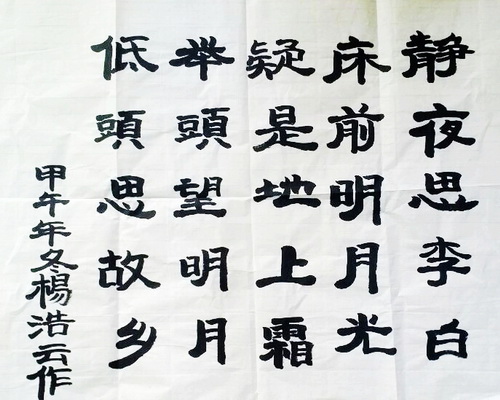 静夜思李白
床前明月光
疑是地上霜
举頭望明月
低頭思故乡
甲午年冬楊浩云作